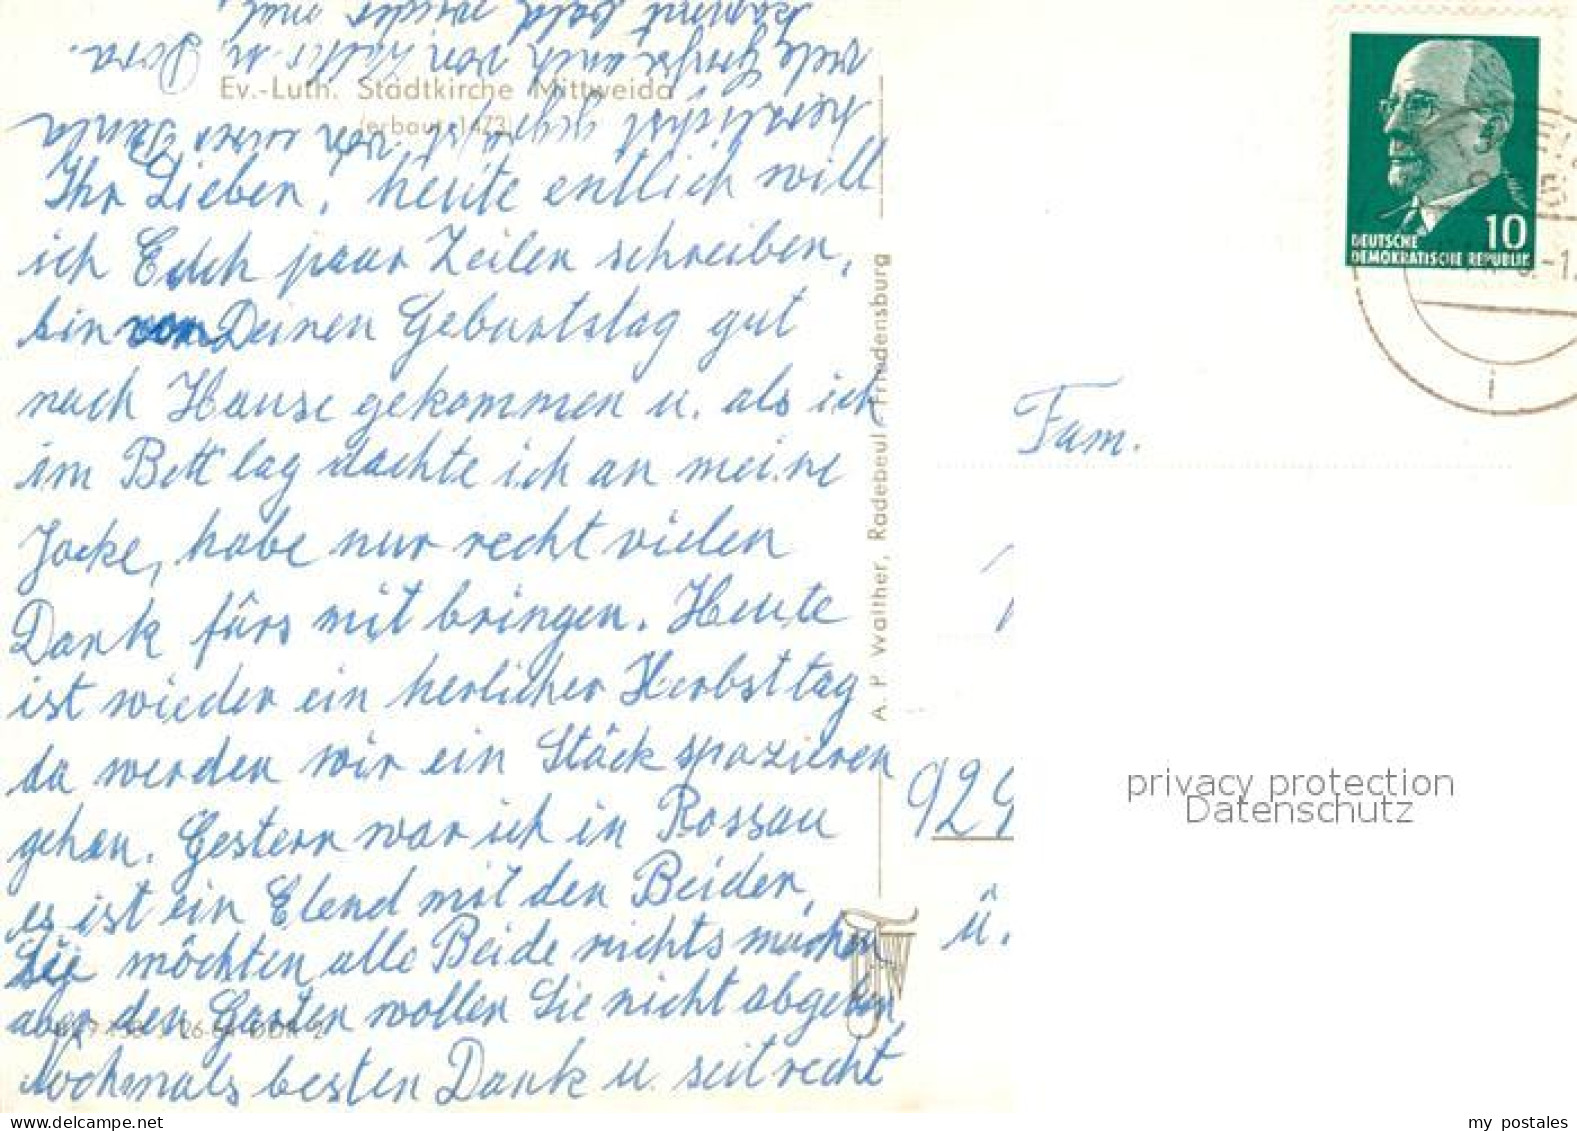 Ev.-Luth. Stadtkirche Mittweida
(erbaut 1473)
Ihr Lieben, heute entlich will
ich Euch paar Zeilen schreiben,
bin von Deinen Geburtstag gut
nach Hause gekommen u. als ich
im Bett lag dachte ich an meine
Jacke, habe nur recht vielen
Dank fürs mit bringen. Heute
ist wieder ein herlicher Herbsttag
da werden wir ein Stück spazieren
gehen. Gestern war ich in Rossau
es ist ein Elend mit den Beiden,
Sie möchten alle Beide nichts machen
aber den Garten wollen Sie nicht abgeben,
Nochmals besten Dank u. seit recht
herzlichst gegrüßt von eurer Tante
viele Grüße auch von Walter u. Dora.
kommt bald wieder mal.
A. P. Walther, Radebeul - Friedensburg
DDR
10
DEUTSCHE
DEMOKRATISCHE REPUBLIK
Fam.
929
ü.
privacy protection
Datenschutz
my postales